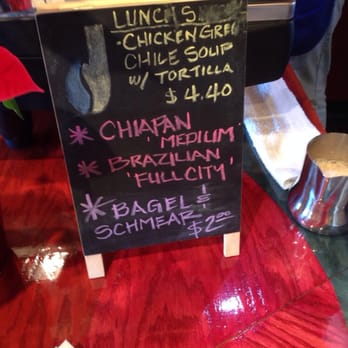 LUNCHS
· CHICKEN GREE
CHILE SOUP
W/ TORTILLA
$ 4.40
* CHIAPAN
'MEDIUM'
* BRAZILIAN
'FULL CITY'
* BAGEL &
SCHMEAR
$2.00